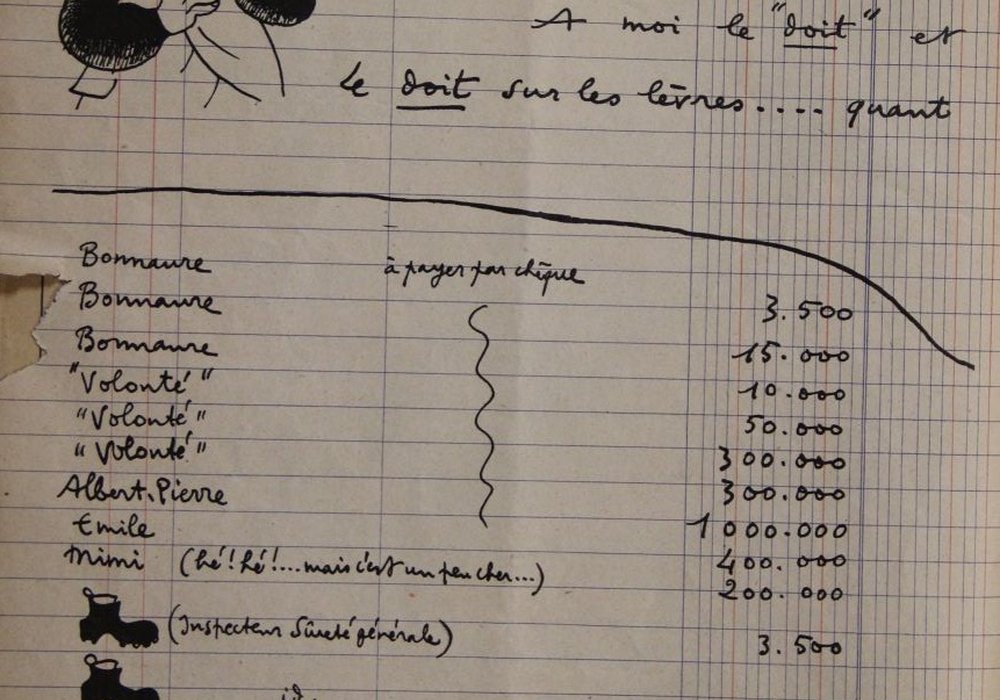 A moi le "doit" et
le doit sur les lèvres.... quant
Bonnaure à payer par chèque 3.500
Bonnaure 15.000
Bonnaure 10.000
"Volonté" 50.000
"Volonté" 300.000
"Volonté" 300.000
Albert.Pierre 1000.000
Emile 400.000
Mimi (hé!hé!...mais c'est un peu cher...) 200.000
(Inspecteur Sûreté générale) 3.500
id.